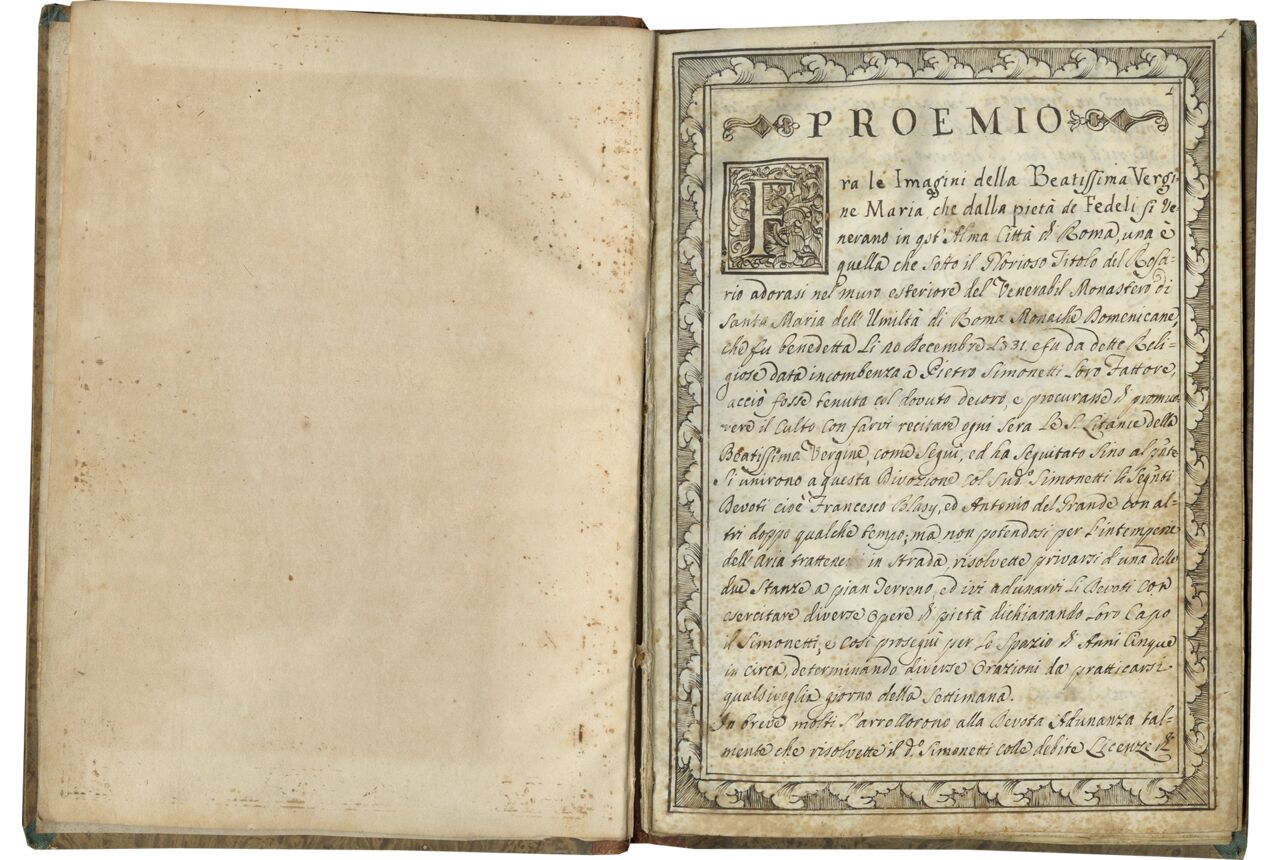 1
PROEMIO
Fra le Imagini della Beatissima Vergi-
ne Maria, che dalla pietà de Fedeli si Ve-
nerano in qst' Alma Città di Roma, una è
quella che sotto il Glorioso Titolo del Rosa-
rio adorasi nel muro esteriore del Venerabil Monastero di
Santa Maria dell'Umiltà di Roma Monache Domenicane,
che fu benedetta li 20 Decembre e fu da dette Reli-
giose data incombenza a Pietro Simonetti loro Fattore,
acciò fosse tenuta col dovuto decoro, e procurasse di promuo
vere il Culto con farvi recitare ogni sera le S. Litanie della
Beatissima Vergine, come seguì, ed ha seguitato sino al pnte
Si unirono a questa Divozione col sud.º Simonetti li segnti
Devoti cioè Francesco Blasy, ed Antonio del Grande con al-
tri doppo qualche tempo; ma non potendosi per l'intemperie
dell'Aria trattenersi in strada, risolvette privarsi d'una delle
due Stanze a pian Terreno, ed ivi adunarvi li Devoti con
esercitare diverse Opere di pietà dichiarando loro Capo
il Simonetti, e così proseguì per lo Spazio di Anni Cinque
in circa, determinando diverse Orazioni da pratticarsi
qualsivoglia giorno della Settimana.
In breve molti s'arrollorono alla Devota Adunanza tal-
mente che risolvette il d.º Simonetti colle debite Licenze di